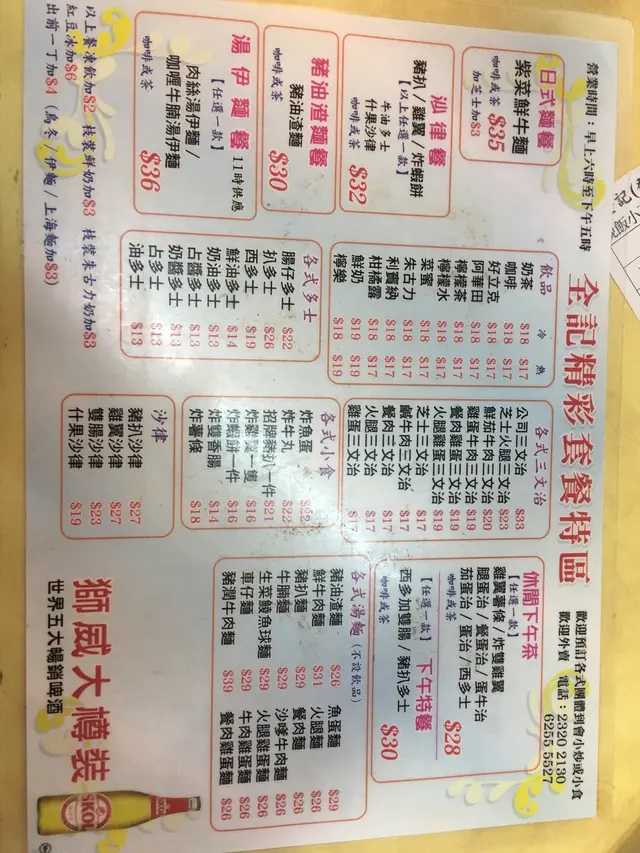 營業時間：早上六時至下午五時
全記精彩套餐特區
歡迎預訂各式團體到會小炒或小食
歡迎外賣 電話：2320 2130
6255 5527
日式麵餐
紫菜鮮牛麵
$35
咖啡或茶
加芝士加$3
沙律餐
豬扒/雞翼/炸蝦餅
【以上任選一款】
牛油多士
什果沙律
咖啡或茶
$32
豬油渣麵餐
豬油渣麵
咖啡或茶
$30
湯伊麵餐 11時供應
【任選一款】
肉絲湯伊麵/
咖喱牛腩湯伊麵
咖啡或茶
$36
以上餐凍飲加$2 枝裝鮮奶加$3 枝裝朱古力奶加$3
紅豆冰加$6
出前一丁加$4 (烏冬/伊麵/上海麵加$3)
飲品 冷 熱
奶茶 $18 $17
咖啡 $18 $17
好立克 $18 $17
阿華田 $18 $17
檸檬茶 $18 $17
檸檬水 $18 $17
菜蜜 $18 $17
朱古力 $18 $17
利賓納 $18 $17
柑橘露 $18 $17
鮮奶 $19 $18
檸樂 $18 $19
各式多士
腸仔多士 $22
扒多士 $26
西多士 $19
鮮油多士 $14
奶油多士 $13
占醬多士 $13
奶醬多士 $13
占多士 $13
油多士 $13
各式三文治
公司三文治 $33
芝士火腿三文治 $23
鮮茄牛肉三文治 $20
雞蛋牛肉三文治 $19
餐肉雞蛋三文治 $19
火腿雞蛋三文治 $19
芝士三文治 $17
鹹牛肉三文治 $17
餐肉三文治 $17
火腿三文治 $17
雞蛋三文治 $17
各式小食
炸魚蛋 $22
炸牛丸 $22
招牌豬扒一件 $21
炸雞翼一隻 $16
炸蝦餅一件 $16
炸雙香腸 $14
炸薯條 $18
沙律
豬扒沙律 $27
雞翼沙律 $27
雙腸沙律 $23
什果沙律 $19
休閒下午茶
【任選一款】
雞翼薯條/炸雙雞翼
腿蛋治/餐蛋治/蛋牛治
茄蛋治/蛋治/西多士
咖啡或茶
$28
下午特餐
【任選一款】
西多加雙腸/豬扒多士
咖啡或茶
$30
各式湯麵(不設飲品)
豬油渣麵 $26
鮮牛肉麵 $31
豬扒麵 $29
牛腩麵 $29
生菜鯪魚球麵 $29
車仔麵 $29
豬潤牛肉麵 $39
魚蛋麵 $29
火腿麵 $26
餐肉麵 $26
沙嗲牛肉麵 $26
火腿雞蛋麵 $26
牛肉雞蛋麵 $26
餐肉雞蛋麵 $26
獅威大樽裝
世界五大暢銷啤酒
SKOL